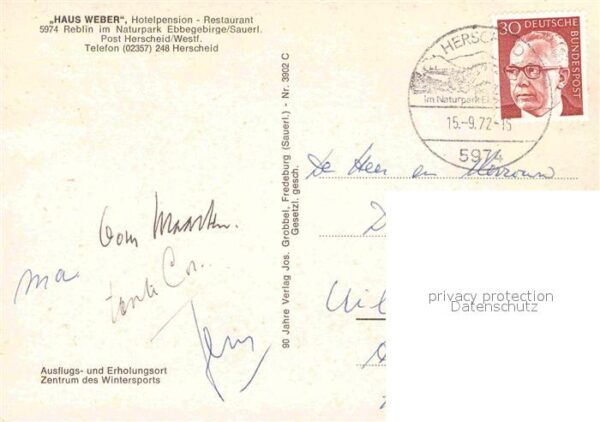 „HAUS WEBER", Hotelpension - Restaurant
5974 Reblin im Naturpark Ebbegebirge/Sauerl.
Post Herscheid/Westf.
Telefon (02357) 248 Herscheid
90 Jahre Verlag Jos. Grobbel, Fredeburg (Sauerl.) - Nr. 3902 C
Gesetzl. gesch.
HERSC
im Naturpark
15.-9.72-15
5974
30 DEUTSCHE
BUNDESPOST
De Heer en Mevrouw
D
Wil
privacy protection
Datenschutz
Oom Maarten.
ma
tante Cor.
Ausflugs- und Erholungsort
Zentrum des Wintersports